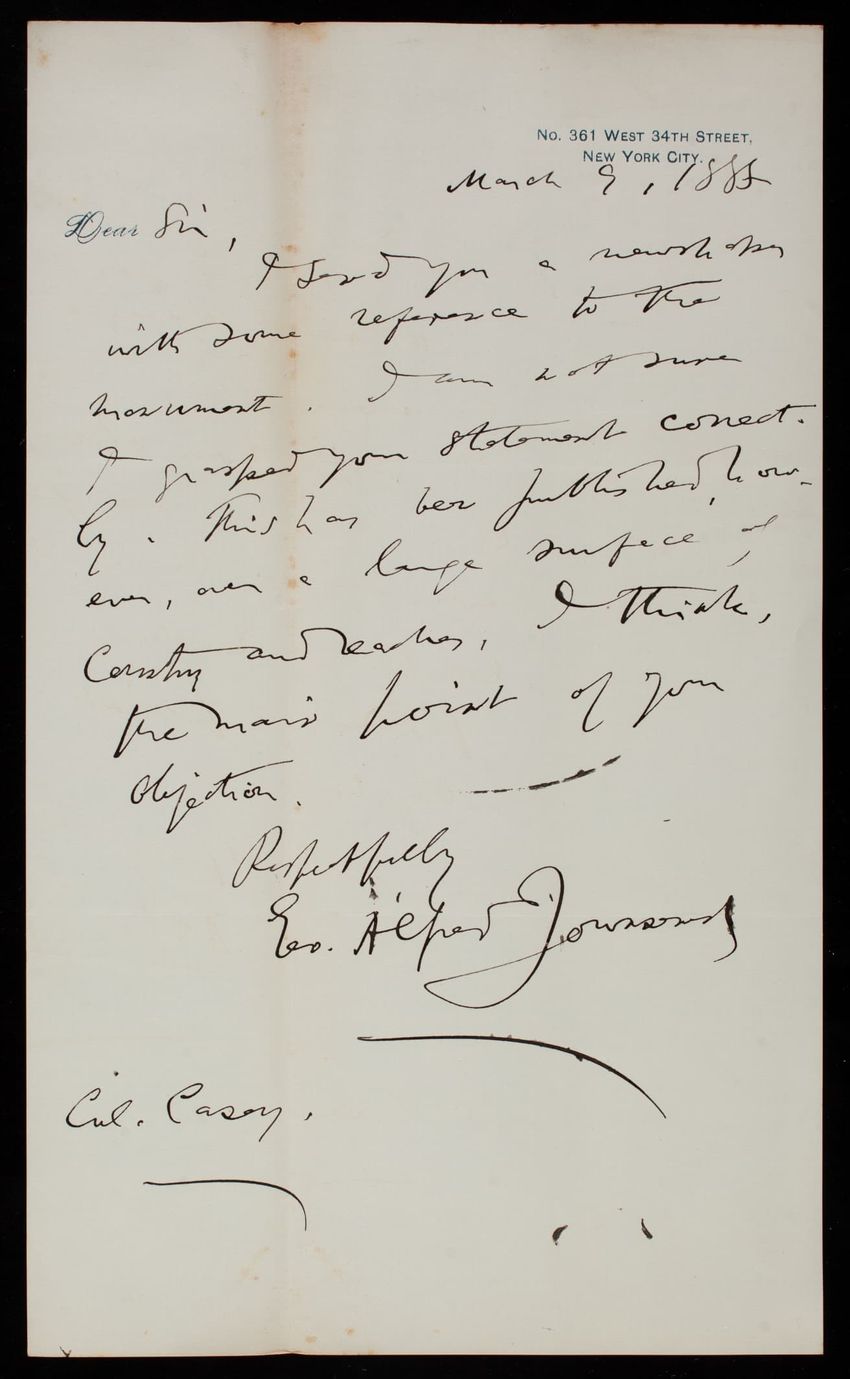 No. 361 West 34th Street,
New York City.
March 9, 1885
Dear Sir,
I send you a newspaper
with some reference to the
monument. I am not sure
I grasped your statement correct-
ly. This has been published, how-
ever, over a large surface of
Country and reaches, I think,
the main point of your
objection.
Respectfully
Geo. Alfred Townsend
Col. Casey.